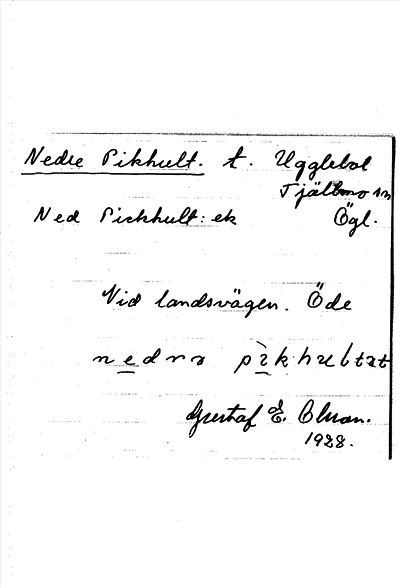 Nedre Pikhult. t. Ugglebol
Tjällmo sn
Ned Pickhult: ek Ögl.
Vid landsvägen. Öde
Gustaf E. Olson.
1928.